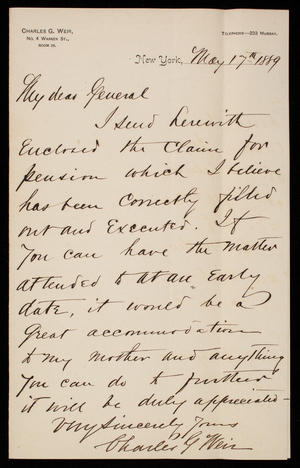 CHARLES G. WEIR,
No. 4 WARREN ST.,
ROOM 25.
TELEPHONE—233 MURRAY.
New York, May 17th 1889
My dear General
I send herewith
Enclosed the Claim for
pension which I believe
has been correctly filled
out and Executed. If
you can have the matter
attended to at an Early
date, it would be a
great accommodation
to my mother and anything
you can do to further
it will be duly appreciated—
Very Sincerely Yours
Charles G Weir